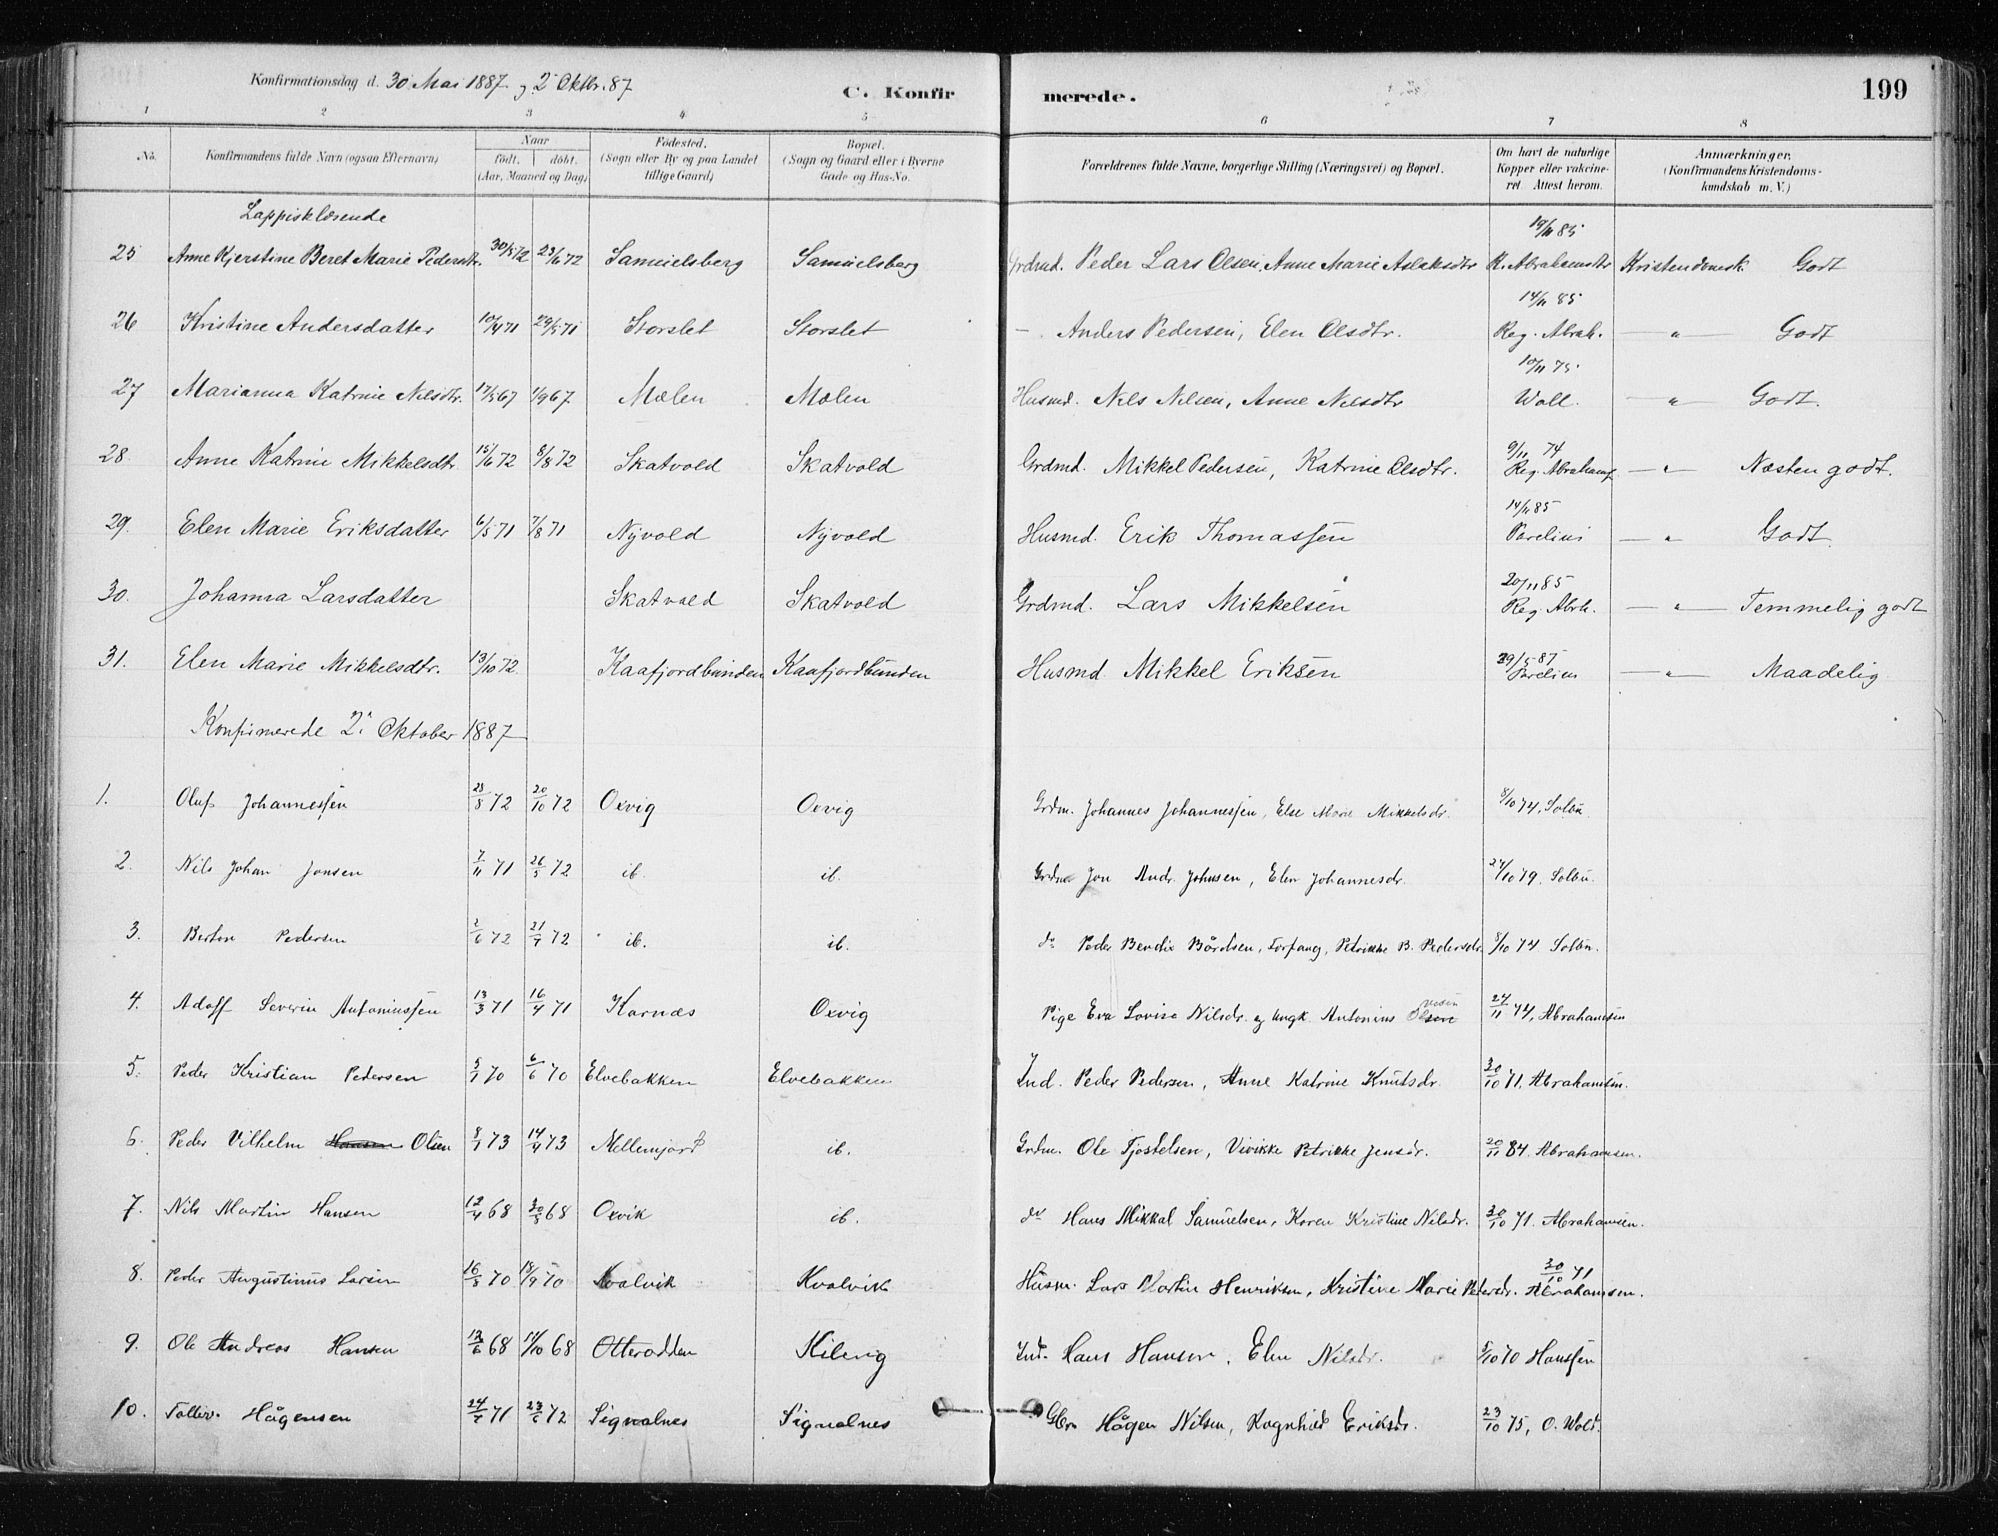 Konfirmationsdag d. 30 Mai 1887 og 2 Oktbr. 87
C. Konfirmerede.
199
1 2 3 4 5 6 7 8
No.
Konfirmandens fulde Navn (ogsaa Efternavn)
Naar
født. døbt.
(Aar, Maaned og Dag)
Fødested.
(Sogn eller By og paa Landet
tillige Gaard)
Bopæl.
(Sogn og Gaard eller i Byerne
Gade og Hus-No.
Forældrenes fulde Navne, borgerlige Stilling (Næringsvei) og Bopæl.
Om havt de naturlige
Kopper eller vakcine-
ret. Attest herom.
Anmærkninger.
(Konfirmandens Kristendoms-
kundskab m. V.)
Lappisklæsende
25 Anne Kjerstine Beret Marie Pedersdtr. 30/5 72 23/6 72 Samuelsberg Samuelsberg Grdmd. Peder Lars Olsen, Anne Marie Aslaksdtr 19/11 85 R. Abrahamsdtr Kristendomsk. Godt
26 Kristine Andersdatter 10/4 71 29/5 71 Storslet Storslet — Anders Pedersen, Elen Olsdtr. 14/11 85 Reg. Abrah. — " — Godt
27 Marianna Katrine Nilsdtr. 17/5 67 1/9 67 Mælen Mælen Husmd. Nils Nilsen, Anne Nilsdtr 10/11 75 Woll. — " — Godt.
28. Anne Katrine Mikkelsdtr 15/6 72 8/8 72 Skatvold Skatvold Grdmd. Mikkel Pedersen, Katrine Olsdtr. 9/11 74 Reg. Abrahams — " — Næsten godt.
29. Elen Marie Eriksdatter 6/5 71 7/8 71 Nyvold Nyvold Husmd. Erik Thomassen 14/11 85 Parelius — " — Godt.
30. Johanna Larsdatter Skatvold Skatvold Grdmd. Lars Mikkelsen 20/11 85 Reg. Abrh. — " — Temmelig godt
31. Elen Marie Mikkelsdtr. 13/10 72. Kaafjordbunden Kaafjordbunden Husmd Mikkel Eriksen 29/5 87 Parelius — " — Maadelig
Konfirmerede 2. Oktober 1887
1. Oluf Johannessen 28/8 72 20/10 72 Oxvig Oxvig Grdm. Johannes Johannessen, Else Marie Mikkelsdr. 8/10 74, Solbu.
2. Nils Johan Jonsen 7/11 71 26/5 72 ib. ib. Grdm Jon Andr. Johnsen, Elen Johannesdr. 27/10 79. Solbu.
3. Berton Pedersen 2/6 72 21/7 72 ib. ib. do Peder Bendix Bårdsen, Torfang, Petrikke B. Pedersdr. 8/10 74 Solbu.
4. Adolf Severin Antoniussen 13/3 71 16/4 71 Karnæs Oxvig Pige Eva Lovise Nilsdr. og Ungk. Antonius Olsen 24/11 74, Abrahamsen
5. Peder Kristian Pedersen 5/1 70 6/6 70 Elvebakken Elvebakken Ind. Peder Pedersen, Anne Katrine Knutsdr. 30/10 71, Abrahamsen.
6. Peder Vilhelm Hansen Olsen 8/1 73 14/4 73 Mellemjord ib. Grdm. Ole Fjostelsen, Vivikke Petrikke Jensdr. 20/11 84. Abrahamsen.
7. Nils Martin Hansen 12/4 68 30/5 68 Oxvik ib. do Hans Mikkal Samuelsen, Karen Kristine Nilsdr. 30/10 71. Abrahamsen.
8. Peder Augustinus Larsen 16/8 70 18/9 70 Kvalvik Kvalvik Husm. Lars Martin Henriksen, Kristine Marie Pedersdr. 30/10 71 Abrahamsen.
9. Ole Andreas Hansen 12/6 68 11/10 68 Otterodden Kilevig Ind. Hans Hansen, Elen Nilsdr. 5/10 70 Hanssen
10. Tollev. Hågensen 24/ 71 23/6 72 Signalnes Signalnes Gbr. Hågen Nilsen, Ragnhild Eriksdr. 23/10 75, O. Wold.